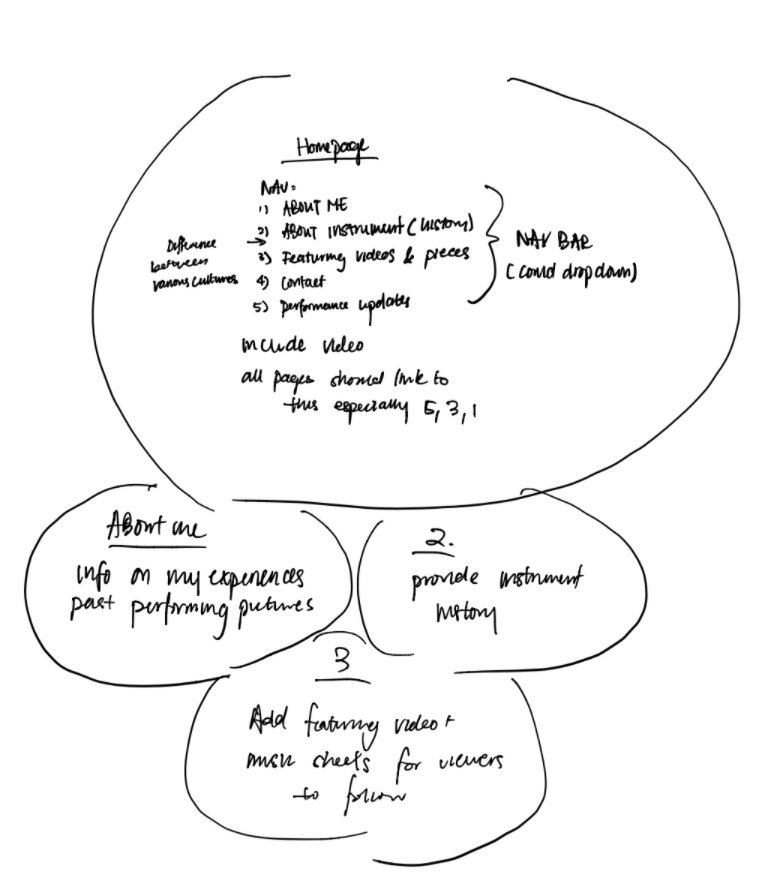 Homepage
NAV:
1) ABOUT ME
2) ABOUT instrument (history)
3) Featuring videos & pieces
4) Contact
5) performance updates
Difference
between
various cultures
NAV BAR
(could drop down)
include video
all pages should link to
this especially 5, 3, 1
About me
info on my experiences
past performing pictures
2.
provide instrument
history
3
Add featuring video +
music sheets for viewers
to follow